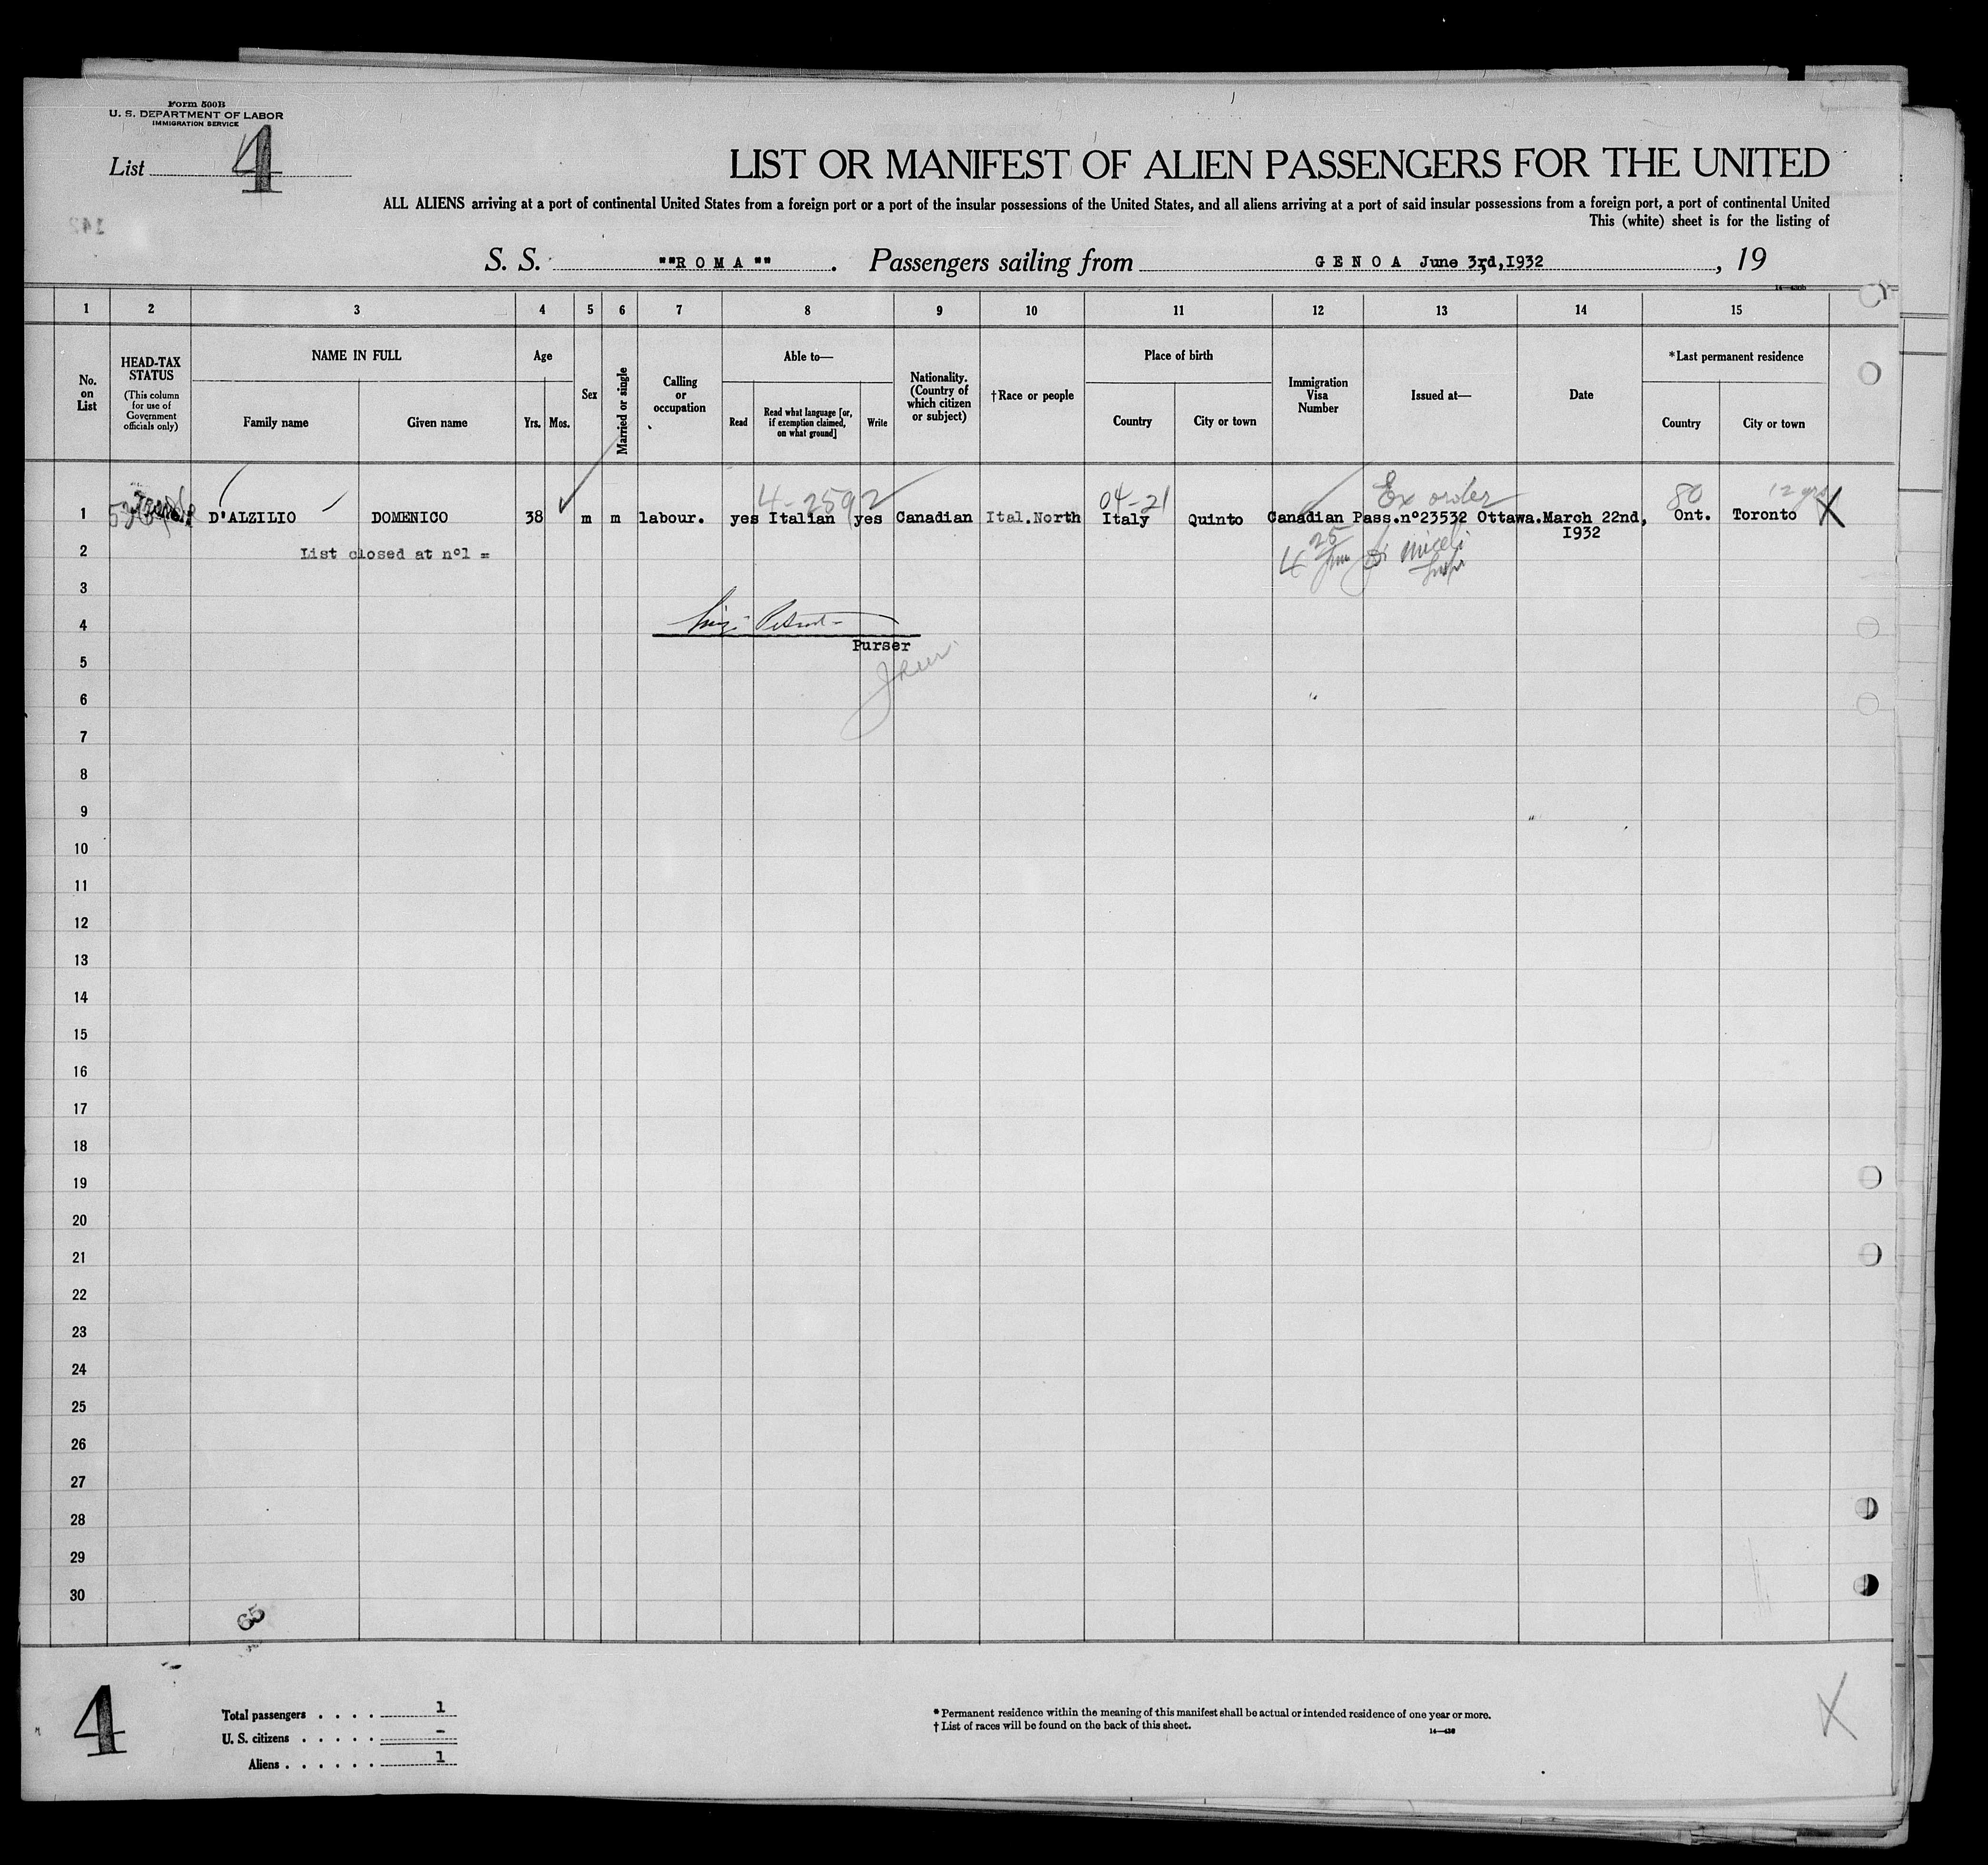 Form 500B
U. S. DEPARTMENT OF LABOR
IMMIGRATION SERVICE
List 4
LIST OR MANIFEST OF ALIEN PASSENGERS FOR THE UNITED
ALL ALIENS arriving at a port of continental United States from a foreign port or a port of the insular possessions of the United States, and all aliens arriving at a port of said insular possessions from a foreign port, a port of continental United
This (white) sheet is for the listing of
142
S. S. ""ROMA"". Passengers sailing from GENOA June 3rd,1932, 19
1 2 3 4 5 6 7 8 9 10 11 12 13 14 15
No. on List
HEAD-TAX STATUS
(This column for use of Government officials only)
NAME IN FULL
Family name
Given name
Age
Yrs.
Mos.
Sex
Married or single
Calling or occupation
Able to—
Read
Read what language [or, if exemption claimed, on what ground]
Write
Nationality. (Country of which citizen or subject)
†Race or people
Place of birth
Country
City or town
Immigration Visa Number
Issued at—
Date
*Last permanent residence
Country
City or town
4-2592 04-21 Ex order 80 12 yrs
1 D'ALZILIO DOMENICO 38 m m labour. yes Italian yes Canadian Ital.North Italy Quinto Canadian Pass.n°23532 Ottawa.March 22nd, 1932 Ont. Toronto X
2 List closed at n°1 =
3
4
Purser
5
6
7
8
9
10
11
12
13
14
15
16
17
18
19
20
21
22
23
24
25
26
27
28
29
30
4
Total passengers . . . . 1
U. S. citizens . . . . . -
Aliens . . . . . . 1
* Permanent residence within the meaning of this manifest shall be actual or intended residence of one year or more.
† List of races will be found on the back of this sheet.
X